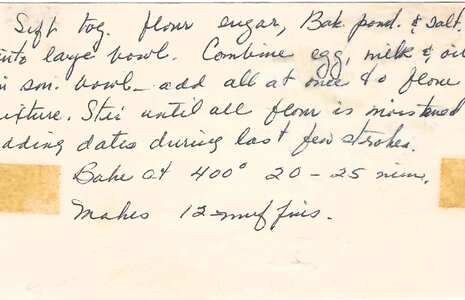 Sift tog. flour sugar, Bak. powd. & salt.
into large bowl. Combine egg, milk & oil
in sm. bowl - add all at once to flour
mixture. Stir until all flour is moistened
adding dates during last few strokes.
Bake at 400° 20-25 min.
Makes 12 muffins.